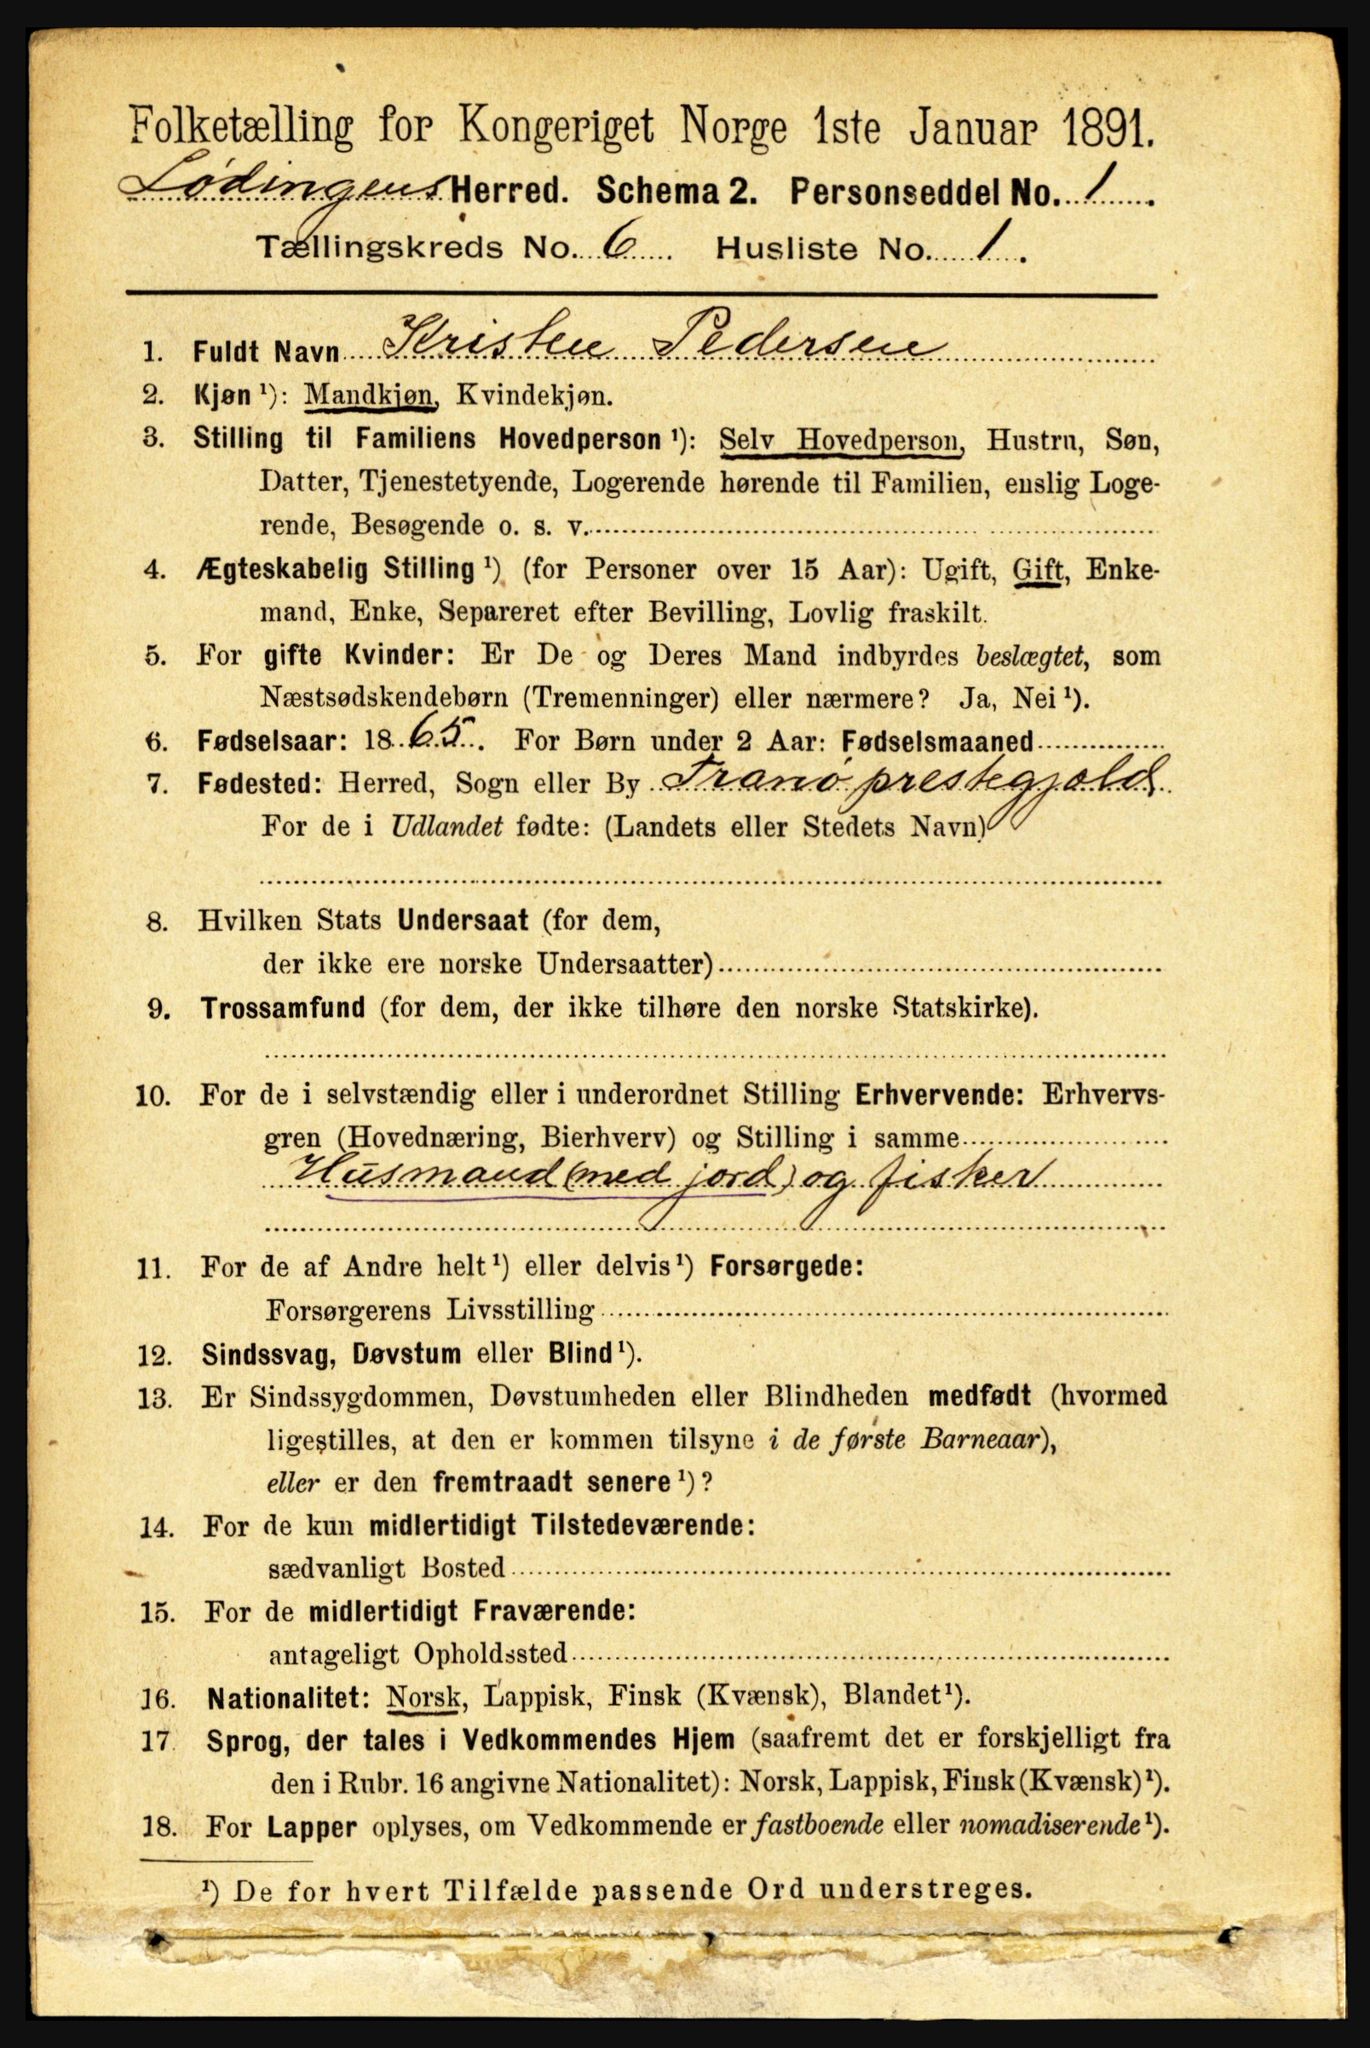 Folketælling for Kongeriget Norge 1ste Januar 1891.
Lødingens Herred. Schema 2. Personseddel No. 1.
Tællingskreds No. 6. Husliste No. 1.
1. Fuldt Navn Kristen Pedersen
2. Kjøn ¹): Mandkjøn, Kvindekjøn.
3. Stilling til Familiens Hovedperson ¹): Selv Hovedperson, Hustru, Søn,
Datter, Tjenestetyende, Logerende hørende til Familien, enslig Loge-
rende, Besøgende o. s. v.
4. Ægteskabelig Stilling ¹) (for Personer over 15 Aar): Ugift, Gift, Enke-
mand, Enke, Separeret efter Bevilling, Lovlig fraskilt.
5. For gifte Kvinder: Er De og Deres Mand indbyrdes beslægtet, som
Næstsødskendebørn (Tremenninger) eller nærmere? Ja, Nei ¹).
6. Fødselsaar: 1865. For Børn under 2 Aar: Fødselsmaaned
7. Fødested: Herred, Sogn eller By Tranø prestegjæld
For de i Udlandet fødte: (Landets eller Stedets Navn)
8. Hvilken Stats Undersaat (for dem,
der ikke ere norske Undersaatter)
9. Trossamfund (for dem, der ikke tilhøre den norske Statskirke).
10. For de i selvstændig eller i underordnet Stilling Erhvervende: Erhvervs-
gren (Hovednæring, Bierhverv) og Stilling i samme
Husmand (med jord) og fisker
11. For de af Andre helt ¹) eller delvis ¹) Forsørgede:
Forsørgerens Livsstilling
12. Sindssvag, Døvstum eller Blind ¹).
13. Er Sindssygdommen, Døvstumheden eller Blindheden medfødt (hvormed
ligestilles, at den er kommen tilsyne i de første Barneaar),
eller er den fremtraadt senere ¹)?
14. For de kun midlertidigt Tilstedeværende:
sædvanligt Bosted
15. For de midlertidigt Fraværende:
antageligt Opholdssted
16. Nationalitet: Norsk, Lappisk, Finsk (Kvænsk), Blandet ¹).
17. Sprog, der tales i Vedkommendes Hjem (saafremt det er forskjelligt fra
den i Rubr. 16 angivne Nationalitet): Norsk, Lappisk, Finsk (Kvænsk) ¹).
18. For Lapper oplyses, om Vedkommende er fastboende eller nomadiserende ¹).
¹) De for hvert Tilfælde passende Ord understreges.